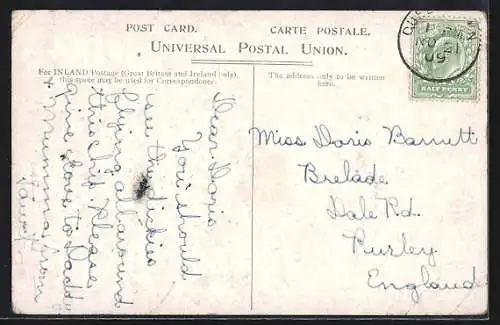 POST CARD.
CARTE POSTALE.
UNIVERSAL POSTAL UNION.
For INLAND Postage (Great Britain and Ireland only),
this space may be used for Correspondence.
The address only to be written
here.
Dear Doris
You should
see the dickies
flying all around
this ship. Please
give love to Daddy
& Mummie from
Miss Doris Barnett
Brelade
Dale Rd.
Purley
England
HALF PENNY
09